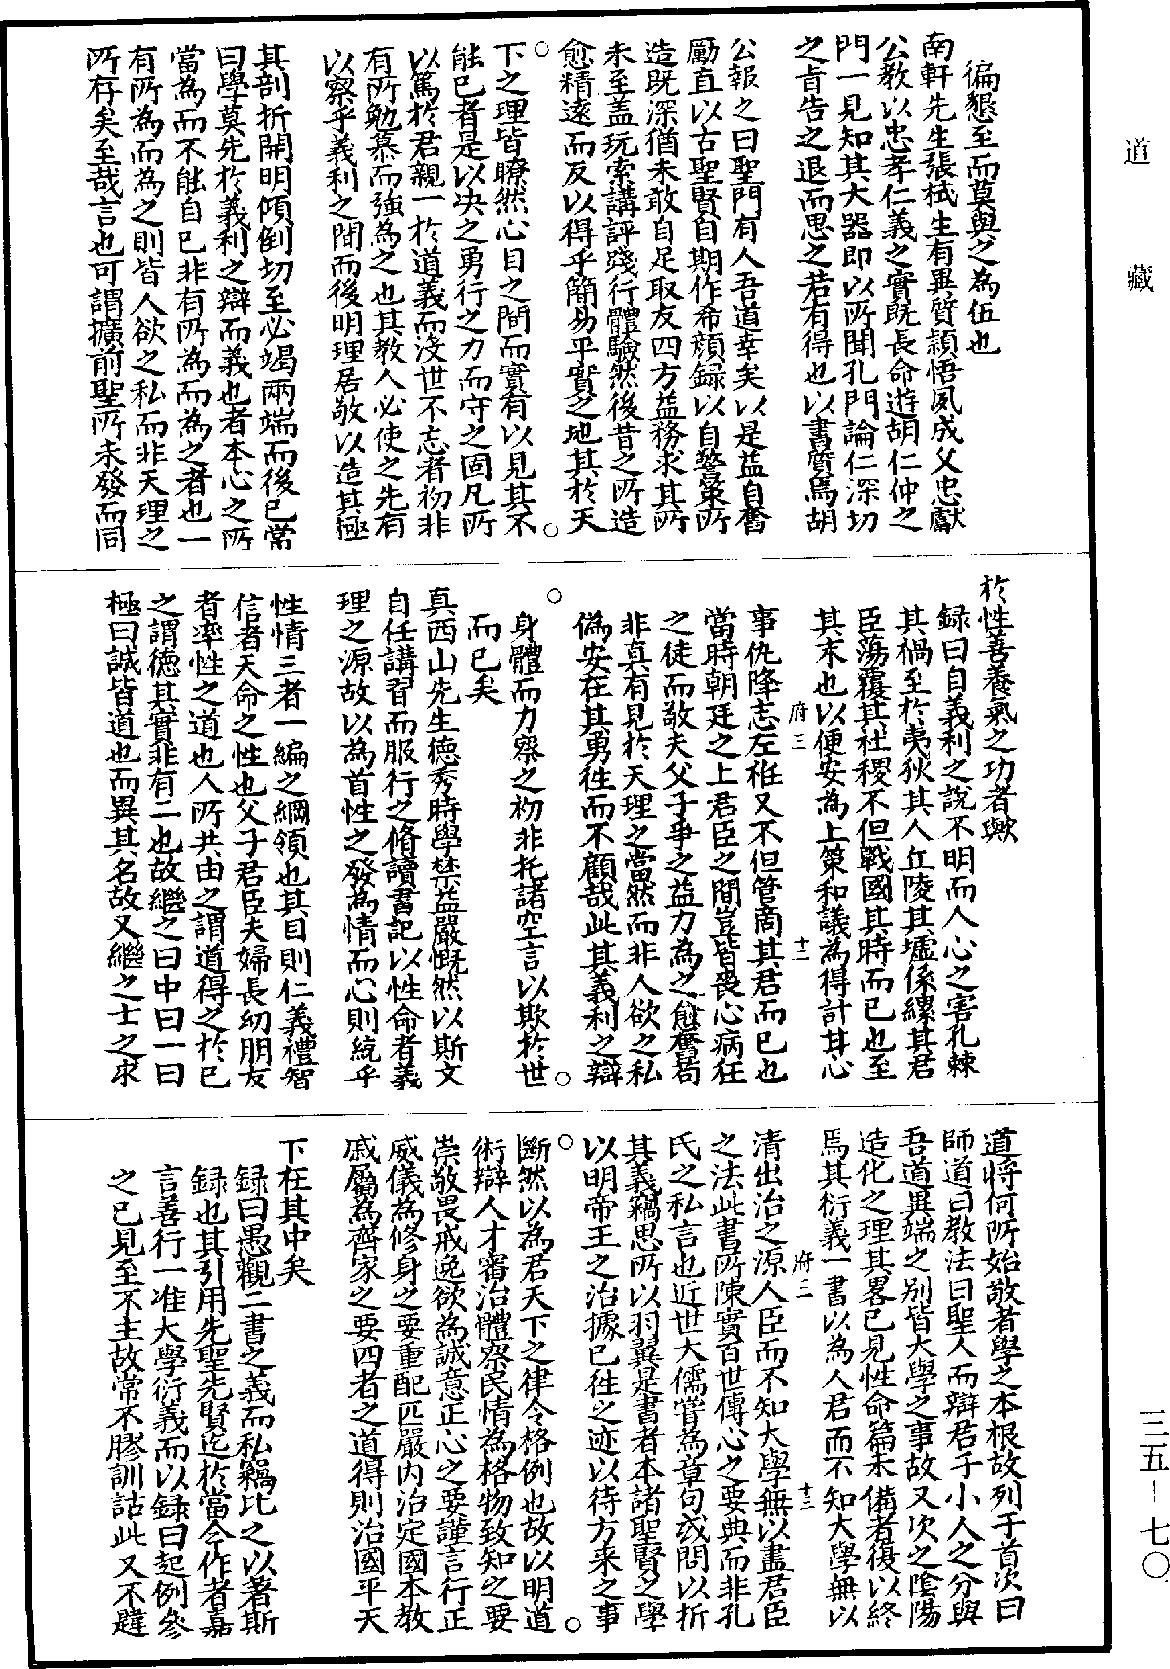 道藏
三五-七〇
徧懇至而莫與之為伍也
南軒先生張栻生有異質頴悟夙成父忠獻
公教以忠孝仁義之實既長命遊胡仁仲之
門一見知其大器即以所聞孔門論仁深切
之旨告之退而思之若有得也以書質焉胡
公報之曰聖門有人吾道幸矣以是益自奮
勵直以古聖賢自期作希顏録以自警策所
造既深猶未敢自足取友四方益務求其所
未至盖玩索講評踐行體驗然後昔之所造
愈精遠而反以得乎簡易平實之地其於天
下之理皆瞭然心目之間而實有以見其不
能已者是以决之勇行之力而守之固凡所
以篤於君親一於道義而沒世不忘者初非
有所勉慕而強為之也其教人必使之先有
以察乎義利之間而後明理居敬以造其極
其剖折開明傾倒切至必竭兩端而後已常
曰學莫先於義利之辯而義也者本心之所
當為而不能自已非有所為而為之者也一
有所為而為之則皆人欲之私而非天理之
所存矣至哉言也可謂擴前聖所未發而同
於性善養氣之功者歟
録曰自義利之說不明而人心之害孔棘
其禍至於夷狄其人丘陵其墟係縲其君
臣蕩覆其社稷不但戰國其時而已也至
其末也以便安為上策和議為得計甘心
府三　十二
事仇降志左衽又不但管商其君而已也
當時朝廷之上君臣之間豈皆喪心病狂
之徒而敬夫父子爭之益力為之愈奮茍
非真有見於天理之當然而非人欲之私
偽安在其勇徃而不顧哉此其義利之辯
身體而力察之初非托諸空言以欺於世
而已矣
真西山先生德秀時學禁益嚴慨然以斯文
自任講習而服行之脩讀書記以性命者義
理之源故以為首性之發為情而心則統乎
性情三者一編之綱領也其目則仁義禮智
信者天命之性也父子君臣夫婦長幼朋友
者率性之道也人所共由之謂道得之於已
之謂德其實非有二也故繼之曰中曰一曰
極曰誠皆道也而異其名故又繼之士之求
道將何所始敬者學之本根故列于首次曰
師道曰教法曰聖人而辯君子小人之分與
吾道異端之别皆大學之事故又次之陰陽
造化之理其畧已見性命篇未備者復以終
焉其衍義一書以為人君而不知大學無以
府二　十三
清出治之源人臣而不知大學無以盡君臣
之法此書所陳實百世傳心之要典而非孔
氏之私言也近世大儒嘗為章句或問以折
其義竊思所以羽翼是書者本諸聖賢之學
以明帝王之治據已徃之迹以待方来之事
断然以為君天下之律令格例也故以明道
術辯人才審治體察民情為格物致知之要
崇敬畏戒逸欲為誠意正心之要謹言行正
威儀為修身之要重配匹嚴内治定國本教
戚屬為齊家之要四者之道得則治國平天
下在其中矣
録曰愚觀二書之義而私竊比之以著斯
録也其引用先聖先賢迄於當今作者嘉
言善行一准大學衍義而以録曰起例參
之已見至不主故常不膠訓詁此又不韙